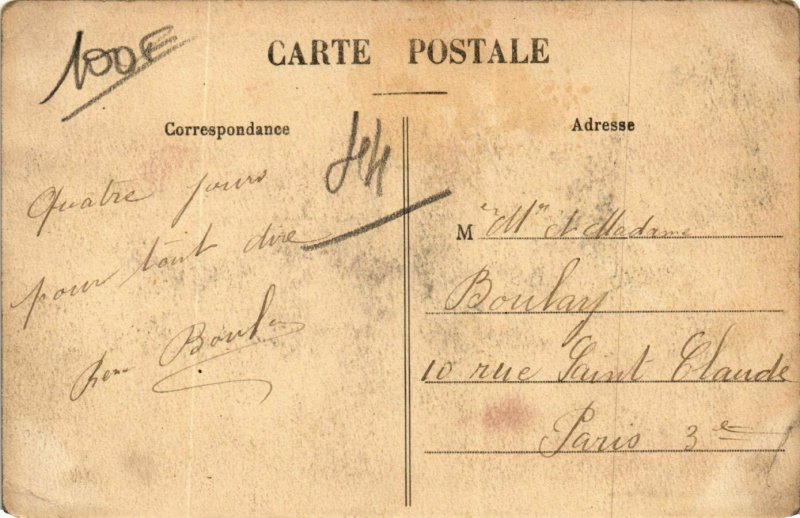 100F
CARTE POSTALE
Correspondance
Quatre jours
pour tout dire
René Boulay
Adresse
M Mr et Madame
Boulay
10 rue Saint Claude
Paris 3e